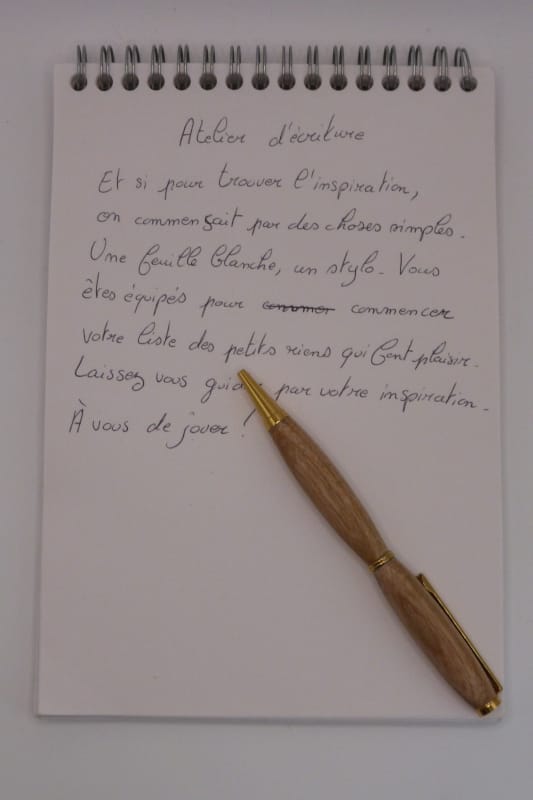 Atelier d'écriture
Et si pour trouver l'inspiration,
on commençait par des choses simples.
Une feuille blanche, un stylo. Vous
êtes équipés pour commencer
votre liste des petits riens qui font plaisir.
Laissez vous par votre inspiration.
À vous de jouer !